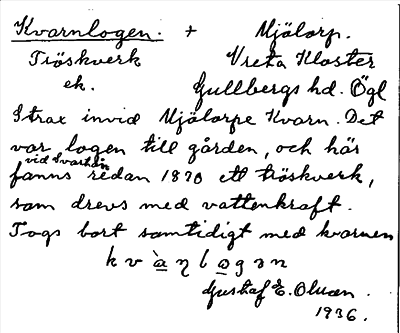 Kvarnlogen. + Mjölorp.
Tröskverk Vreta Kloster
ek. Gullbergs hd. Ögl
Strax invid Mjölorps Kvarn. Det
var logen till gården, och här
vid Svartån
fanns redan 1870 ett tröskverk,
som drevs med vattenkraft.
Togs bort samtidigt med kvarnen
Gustaf E. Olsson.
1936.